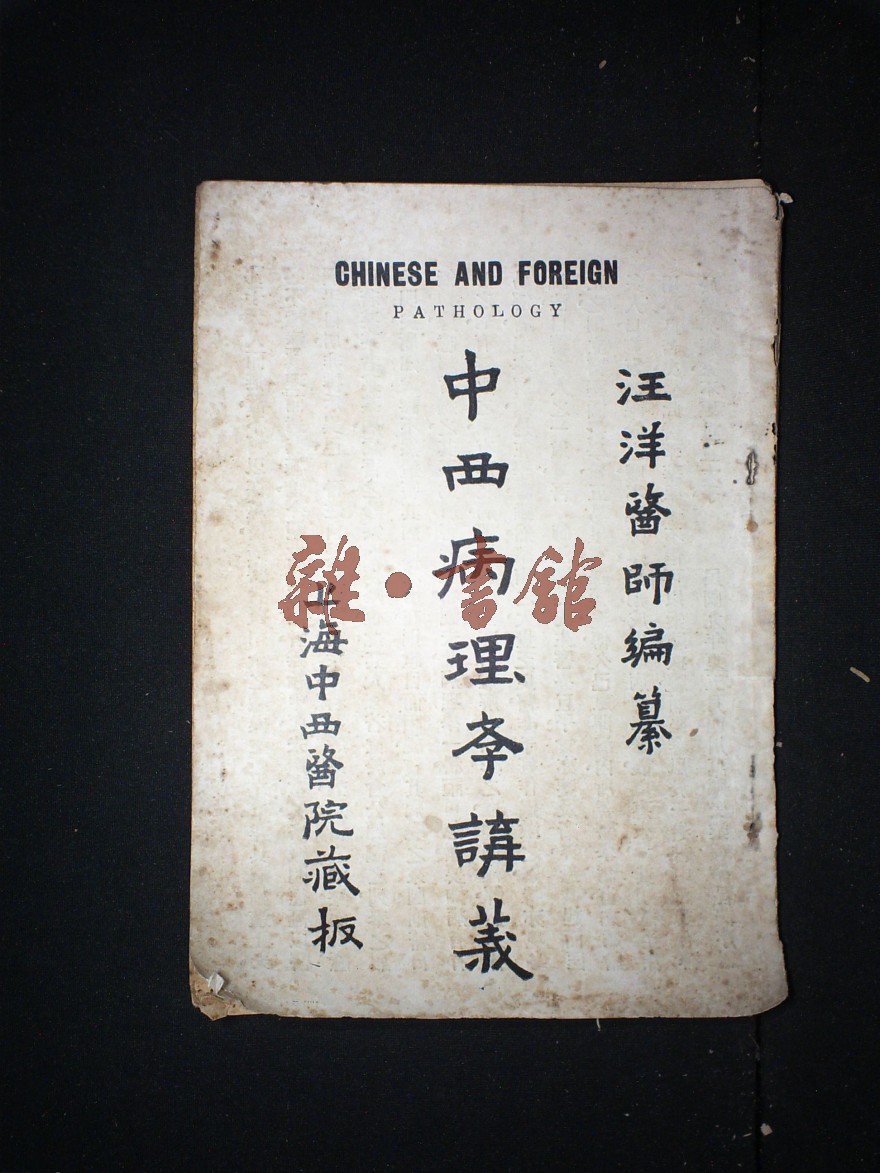 CHINESE AND FOREIGN
PATHOLOGY
汪洋醫師編纂
中西病理斈講義
上海中西醫院藏板
雜·書館